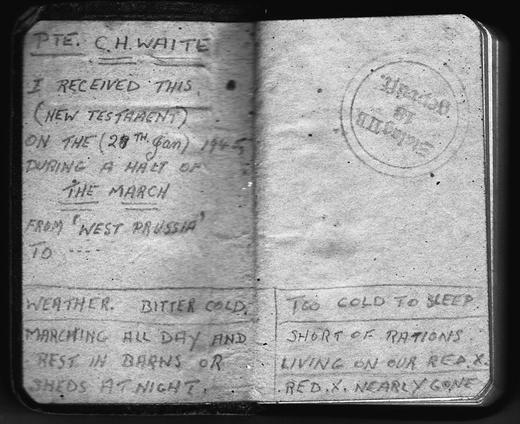 PTE. C.H. WAITE
I RECEIVED THIS.
(NEW TESTAMENT)
ON THE (20TH Jan) 1945
DURING A HALT OF
THE MARCH
FROM 'WEST PRUSSIA'
TO ....
WEATHER. BITTER COLD.
MARCHING ALL DAY AND
REST IN BARNS OR
SHEDS AT NIGHT.
Stalag II B
18
Geprüft
TOO COLD TO SLEEP
SHORT OF RATIONS
LIVING ON OUR RED.X.
RED.X. NEARLY GONE